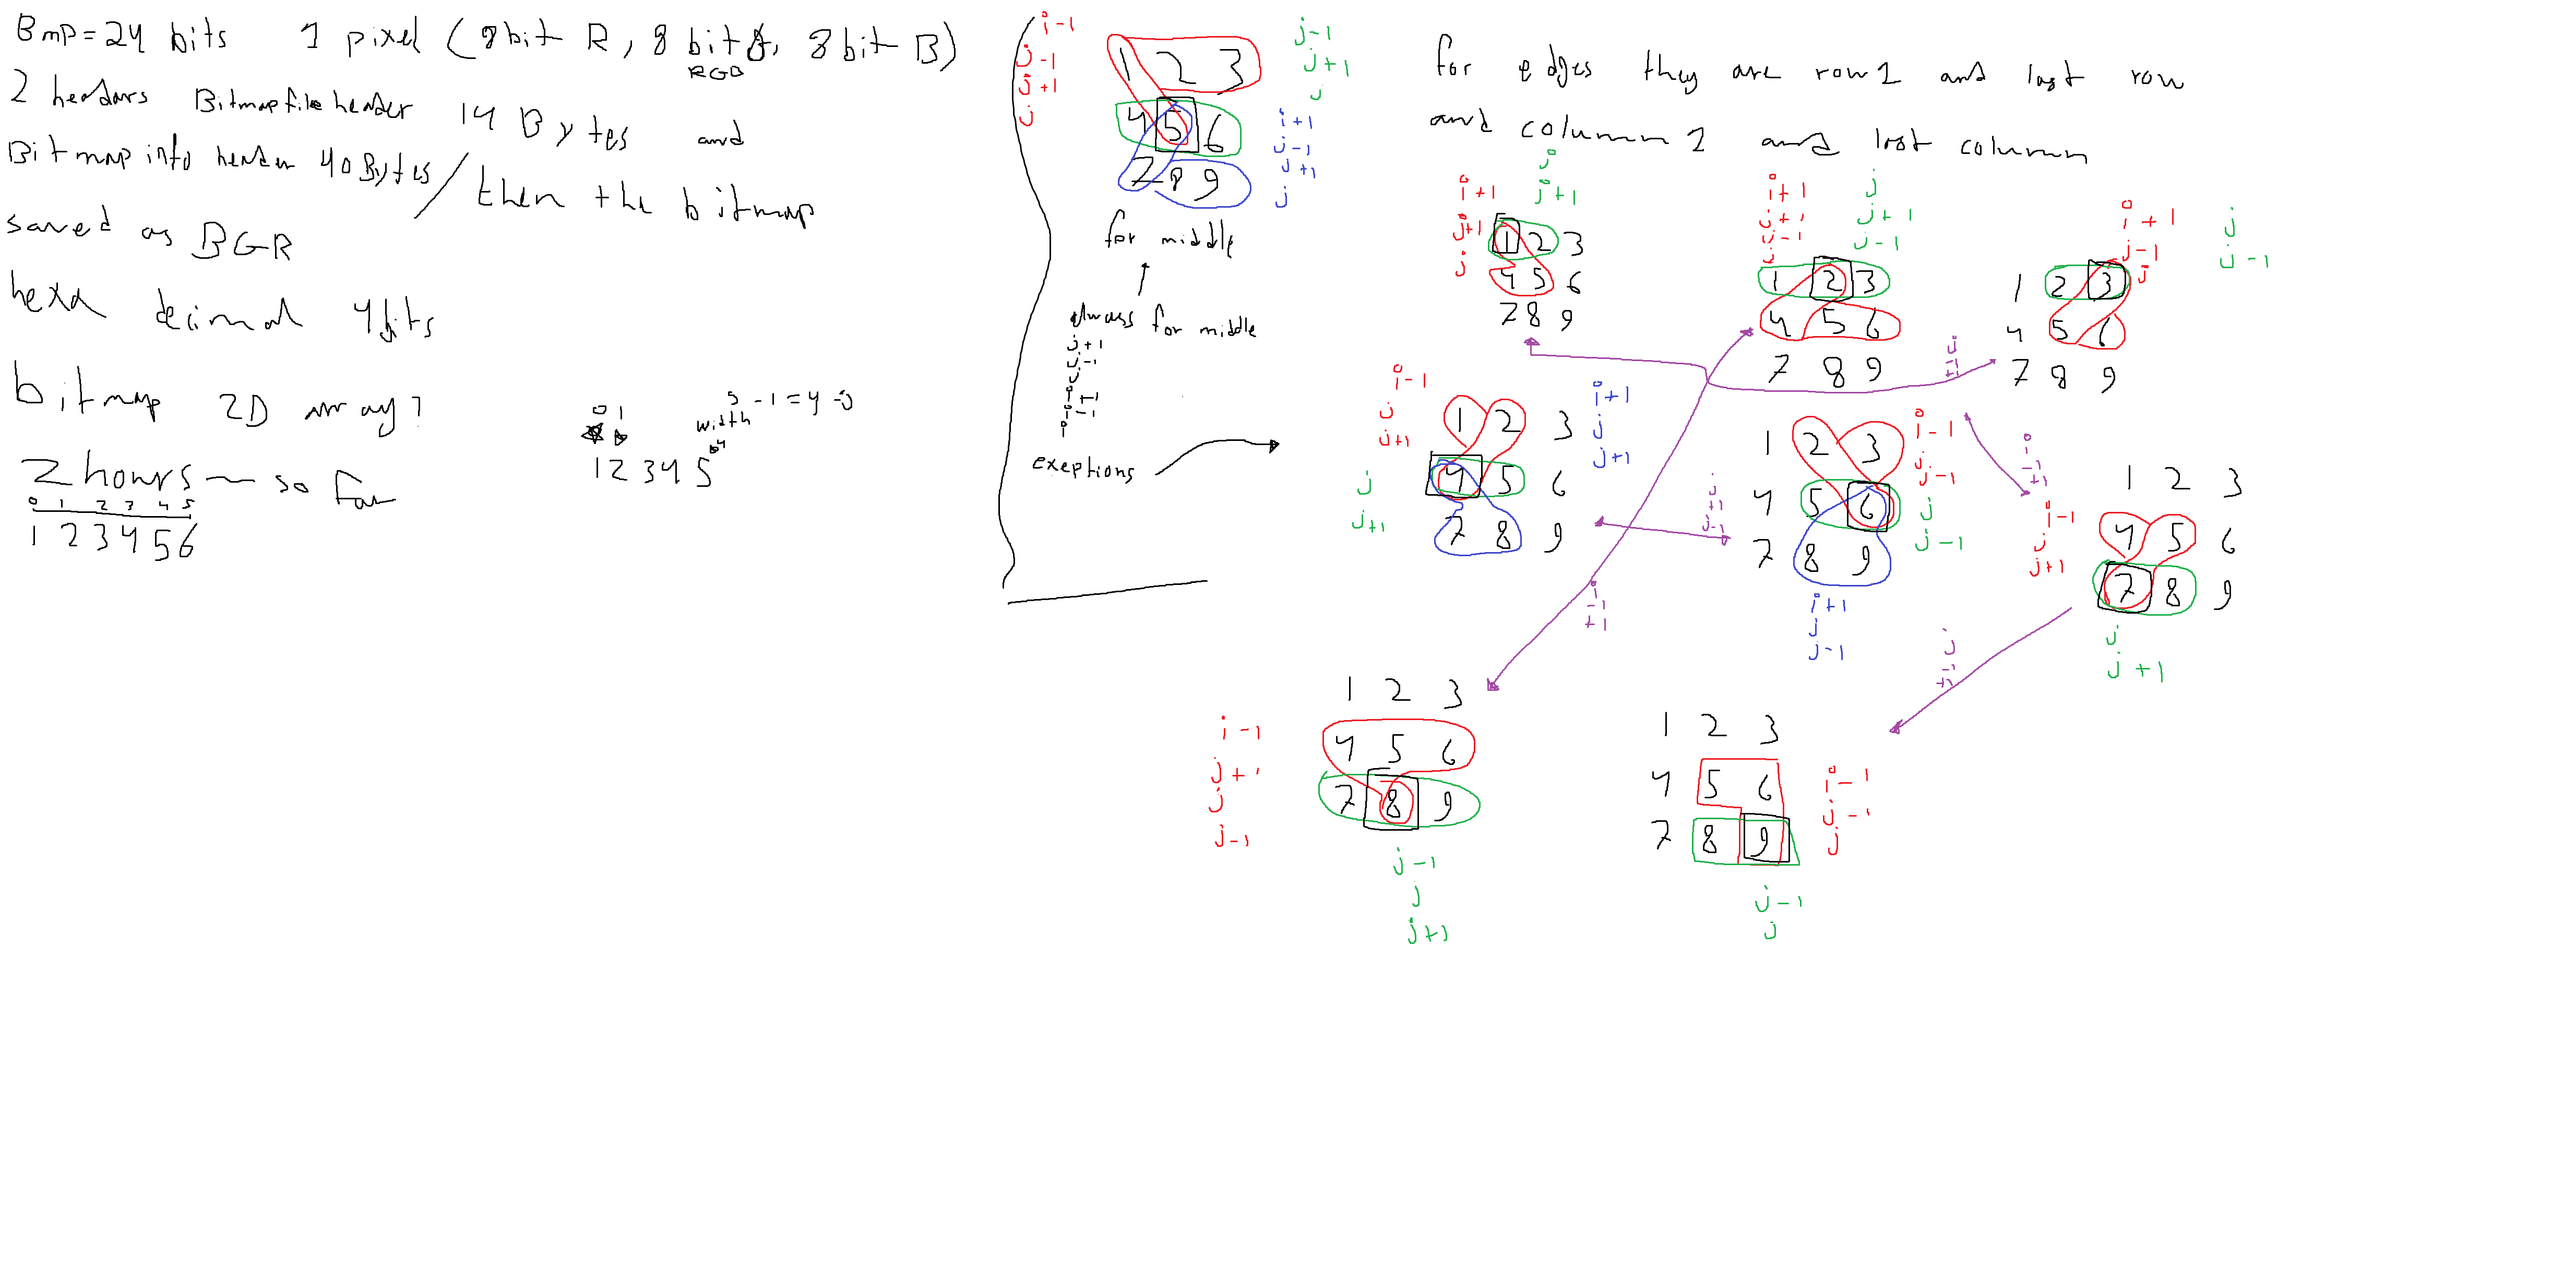 Bmp = 24 bits 1 pixel (8bit R, 8 bit G, 8 bit B)
RGB
2 headars Bitmapfile header 14 Bytes and
Bitmap info header 40 Bytes / then the bitmap
saved as BGR
hexa decimal 4bits
bitmap 2D array?
2 hours — so far
0 1 2 3 4 5
1 2 3 4 5 6
0 1
width 5 - 1 = 4 - 0
4
1 2 3 4 5
i-1
j-1
j+1
j
1 2 3
4 5 6
7 8 9
j-1
j+1
j
i+1
j-1
j+1
j
for middle
always for middle
j+1
j-1
j
i+1
i-1
i
exeptions
for edges they are row 1 and last row
and column 1 and last column
i+1
j+1
j
j
j+1
1 2 3
4 5 6
7 8 9
i+1
j+1
j-1
j
j
j+1
j-1
1 2 3
4 5 6
7 8 9
i+1
j-1
j
j
j-1
1 2 3
4 5 6
7 8 9
j
-1
+1
i-1
j
j+1
1 2 3
4 5 6
7 8 9
j
j+1
i+1
j
j+1
j
+1
j-1
1 2 3
4 5 6
7 8 9
i-1
j
j-1
j
j-1
i+1
j
j-1
i
-1
+1
1 2 3
4 5 6
7 8 9
i-1
j
j+1
j
j+1
i
-1
+1
j
-1
+1
1 2 3
4 5 6
7 8 9
i-1
j+1
j
j-1
j-1
j
j+1
1 2 3
4 5 6
7 8 9
i-1
j-1
j
j-1
j